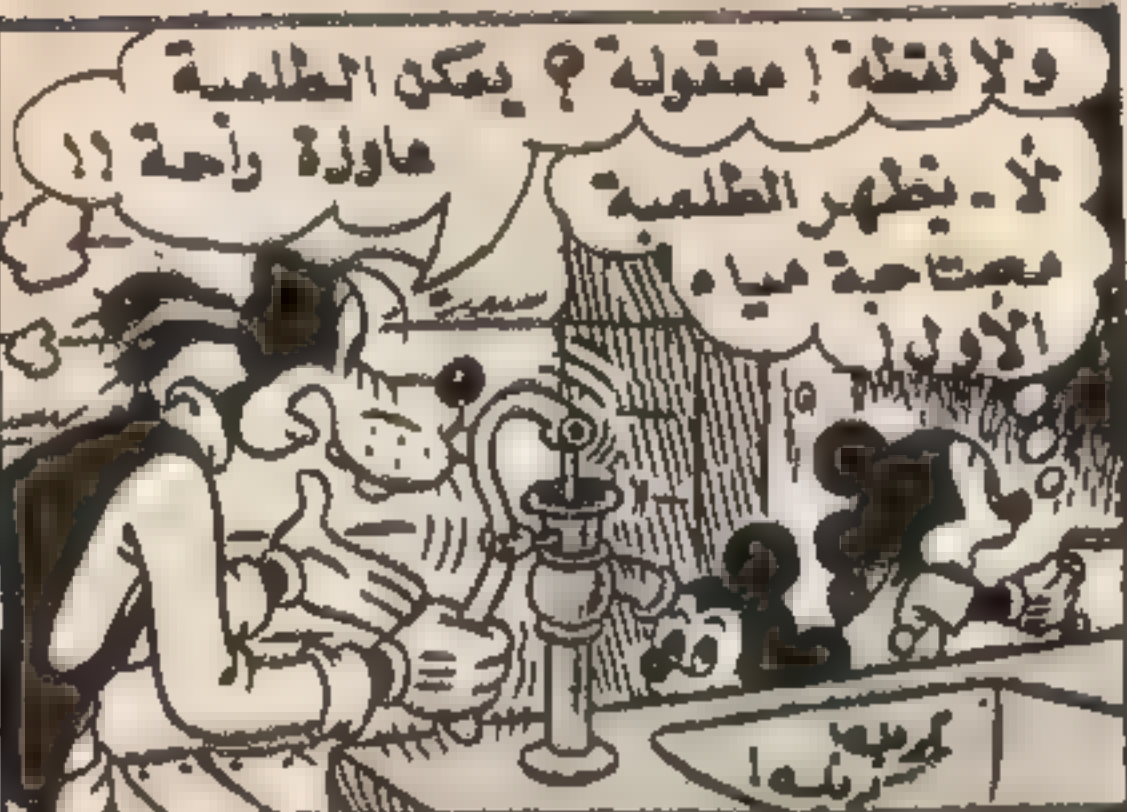 ولا نقطة ! معقولة ؟ يمكن الطلمبة
عاوزة راحة !!
لأ .. يظهر الطلمبة
محتاجة مياه
الأول !